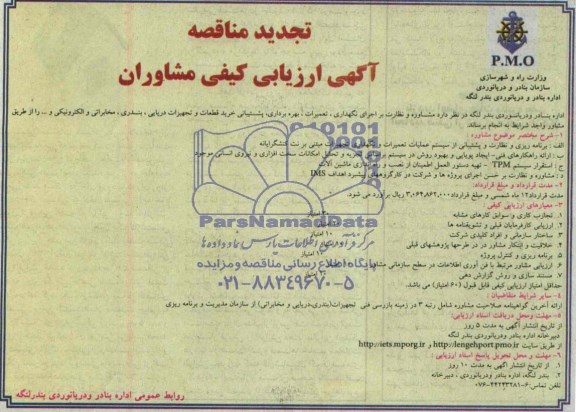 تجدید مناقصه
آگهی ارزیابی کیفی مشاوران
P.M.O
وزارت راه و شهرسازی
سازمان بنادر و دریانوردی
اداره بنادر و دریانوردی بندر لنگه
اداره بنادر ودریانوردی بندر لنگه در نظر دارد مشاوره و نظارت بر اجرای نگهداری ، تعمیرات ، بهره برداری، پشتیبانی خرید قطعات و تجهیزات دریایی ، بندری ، مخابراتی و الکترونیکی و ... را از طریق
مشاور واجد شرایط به انجام برساند.
۱- شرح مختصر موضوع مشاوره :
الف : برنامه ریزی و نظارت و پشتیبانی از سیستم عملیات تعمیرات و نگهداری تجهیزات مبتنی بر نت کنشگرایانه
ب : ارائه راهکارهای فنی- ایجاد پویایی و بهبود روش در سیستم برمبنای تجزیه و تحلیل امکانات سخت افزاری و نیروی انسانی موجود
ج : استقرار سیستم TPM - تهیه دستور العمل اطمینان از نصب و راه اندازی ماشین آلات
د : مشاوره و نظارت بر حسن اجرای پروژه ها و شرکت در کارگروههای پیشبرد اهداف IMS
۲- مدت قرارداد و مبلغ قرارداد:
مدت قرارداد۱۲ ماه شمسی و مبلغ قرارداد ۳،۰۶۴،۸۶۲،۰۰۰ ریال برآورد می شود.
۳- معیارهای ارزیابی کیفی :
۱. تجارب کاری و/سوابق کارهای مشابه
۲. ارزیابی کارفرمایان قبلی و تشویقنامه ها
۳. ساختار سازمانی و افراد کلیدی شرکت ۱۰ امتیاز
۴. خلاقیت و ابتکار مشاور در در طرحها پژوهشهای قبلی
۵. برنامه ریزی و کنترل پروژه
۶. ارزیابی مشاور مرتبط با فن آوری اطلاعات در سطح سازمانی مشابه
۷. مستند سازی و روش گزارش دهی
حداقل امتیاز ارزیابی کیفی قابل قبول (۶۰ امتیاز) می باشد.
۴- سایر شرایط متقاضیان :
ارائه آخرین گواهینامه صلاحیت مشاوره شامل رتبه ۳ در زمینه بازرسی فنی تجهیزات(بندری،دریایی و مخابراتی) از سازمان مدیریت و برنامه ریزی
۵- مهلت ومحل دریافت اسناد ارزیابی:
از تاریخ انتشار آگهی به مدت ۵ روز
دبیرخانه اداره بنادر ودریانوردی بندر لنگه
از طریق سایت http://lengehport.pmo.ir و http://iets.mporg.ir
۶- مهلت و محل تحویل پاسخ اسناد ارزیابی :
۱. از تاریخ انتشار آگهی به مدت ۱۰ روز
۲. بندر لنگه، اداره بنادر ودریانوردی ، دبیرخانه
تلفن تماس:۶-۰۷۶-۲۴۲۴۳۲۸۱
روابط عمومی اداره بنادر ودریانوردی بندرلنگه
ParsNamadData
مرکز فرآوری اطلاعات پارس نماد داده ها
پایگاه اطلاع رسانی مناقصه و مزایده
۰۲۱-۸۸۳۴۹۶۷۰-۵